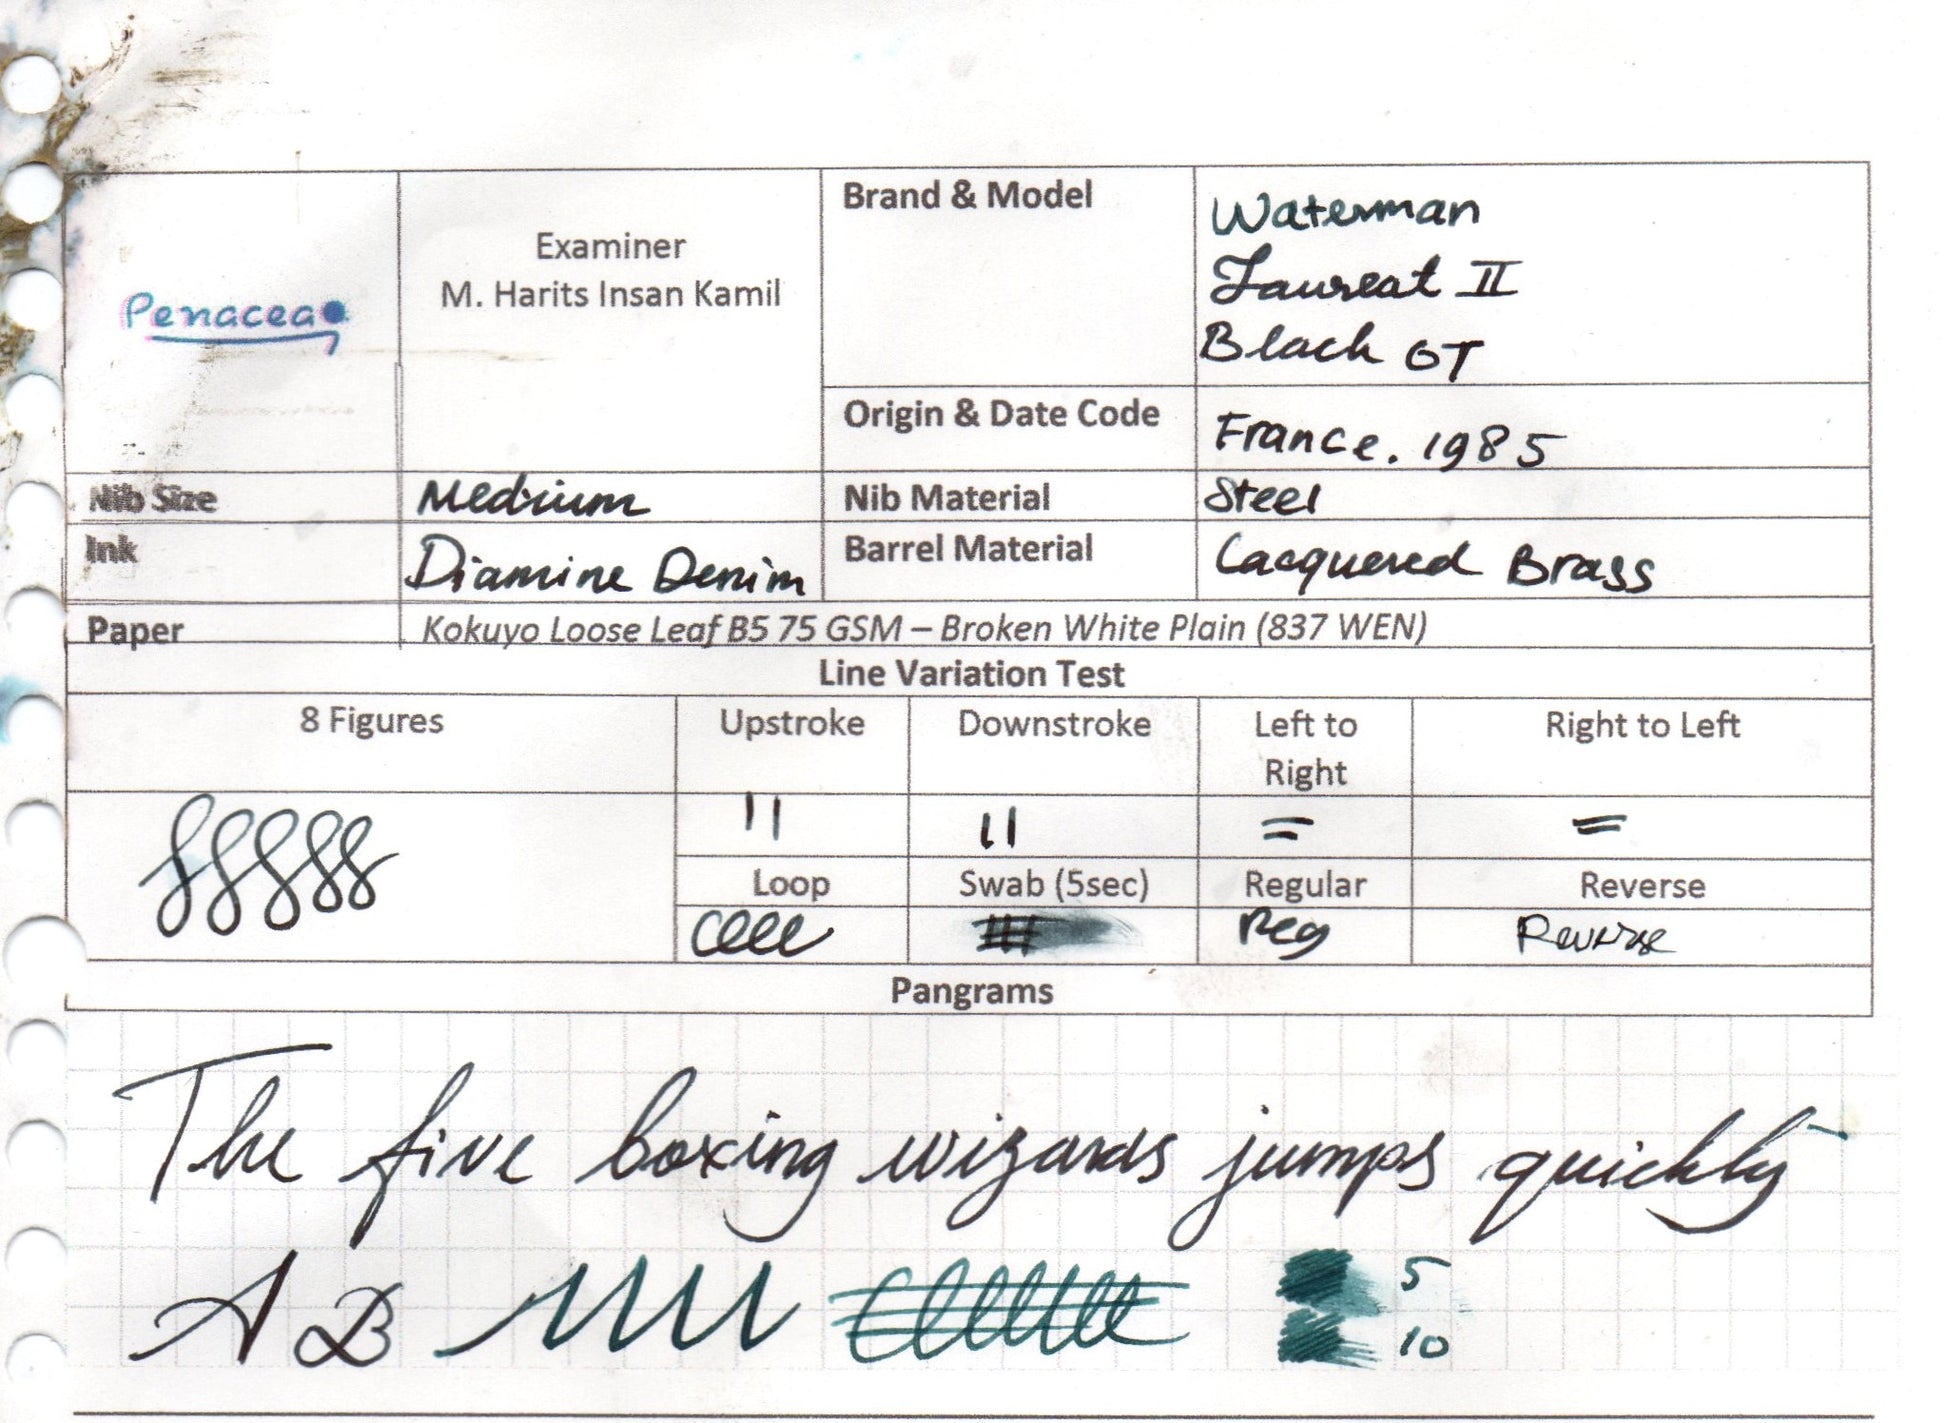 Penacea
Examiner
M. Harits Insan Kamil
Brand & Model
Waterman
Laureat II
Black GT
Origin & Date Code
France. 1985
Nib Size
Medium
Nib Material
Steel
Ink
Diamine Denim
Barrel Material
Lacquered Brass
Paper
Kokuyo Loose Leaf B5 75 GSM – Broken White Plain (837 WEN)
Line Variation Test
8 Figures
Upstroke
Downstroke
Left to
Right
Right to Left
Loop
Swab (5sec)
Regular
Reverse
Reg
Reverse
Pangrams
The five boxing wizards jumps quickly
A B
5
10